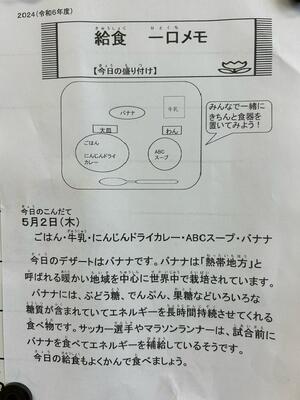 2024(令和6年度)
給食 一口メモ
【今日の盛り付け】
バナナ
牛乳
大皿
わん
ごはん
にんじんドライ
カレー
ABC
スープ
みんなで一緒に
きちんと食器を
置いてみよう!
今日のこんだて
5月2日(木)
ごはん・牛乳・にんじんドライカレー・ABCスープ・バナナ
今日のデザートはバナナです。バナナは「熱帯地方」と
呼ばれる暖かい地域を中心に世界中で栽培されています。
バナナには、ぶどう糖、でんぷん、果糖などいろいろな
糖質が含まれていてエネルギーを長時間持続させてくれる
食べ物です。サッカー選手やマラソンランナーは、試合前に
バナナを食べてエネルギーを補給しているそうです。
今日の給食もよくかんで食べましょう。